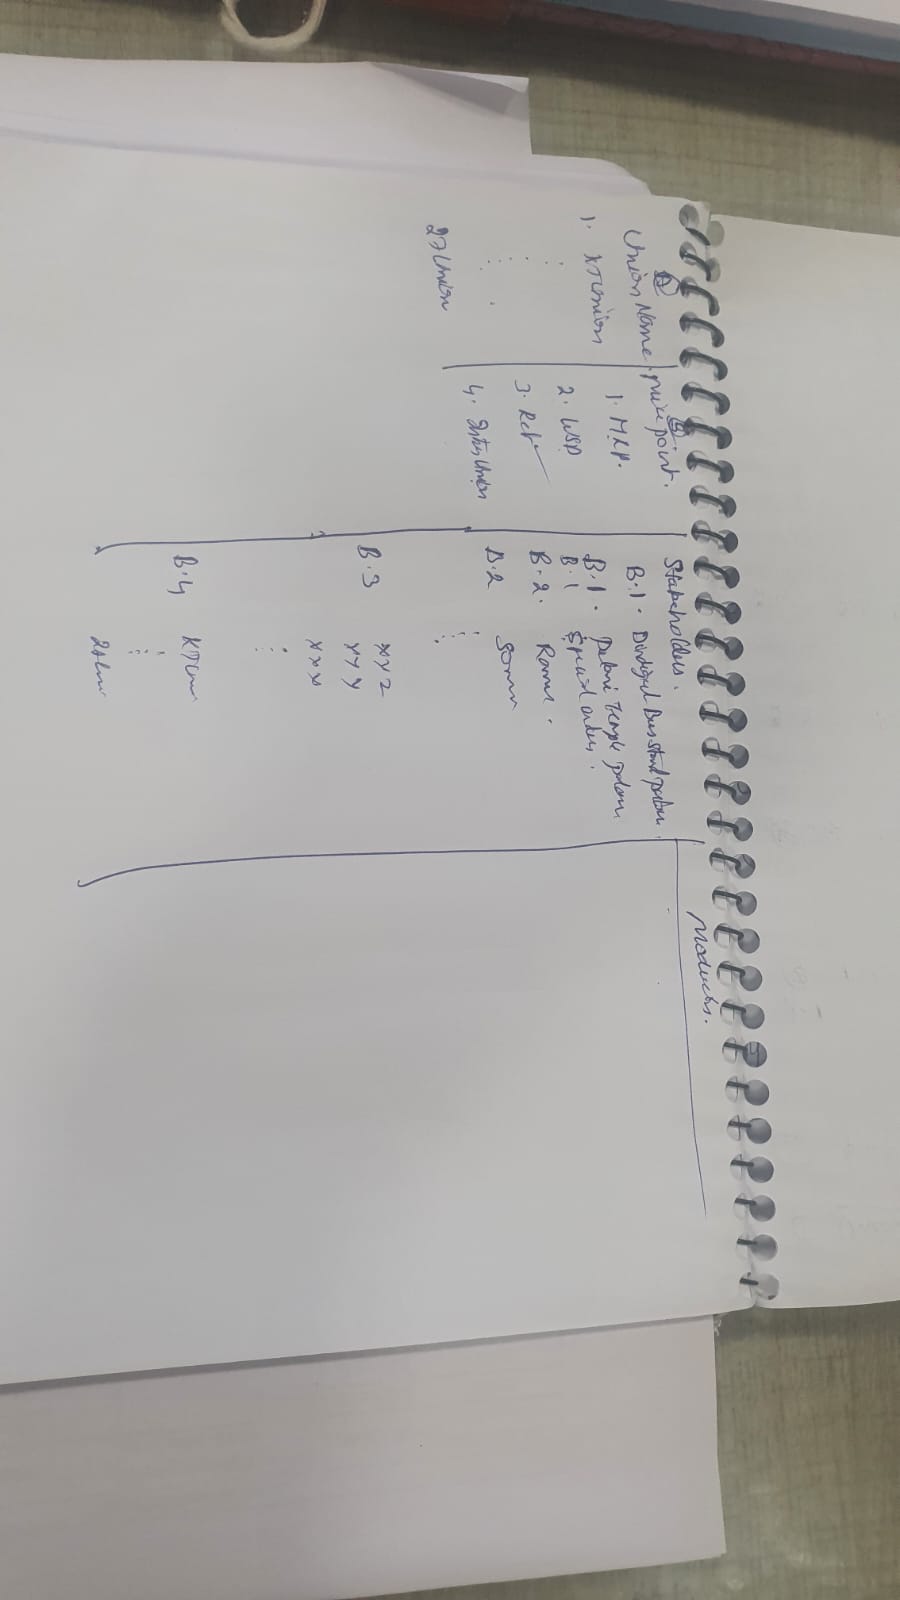 A
Union Name
1. KTC Union
27 Union
B
price point.
1. MRP.
2. WSD
3. Ret
4. Inter Union
Stakeholders.
B.1. Dindigul Bus stand
B.1. Palani Temple
B.1 Special orders.
B.2. Ramu.
B.2 Somu
B.3 XYZ
YYY
XXX
B.4
Products.